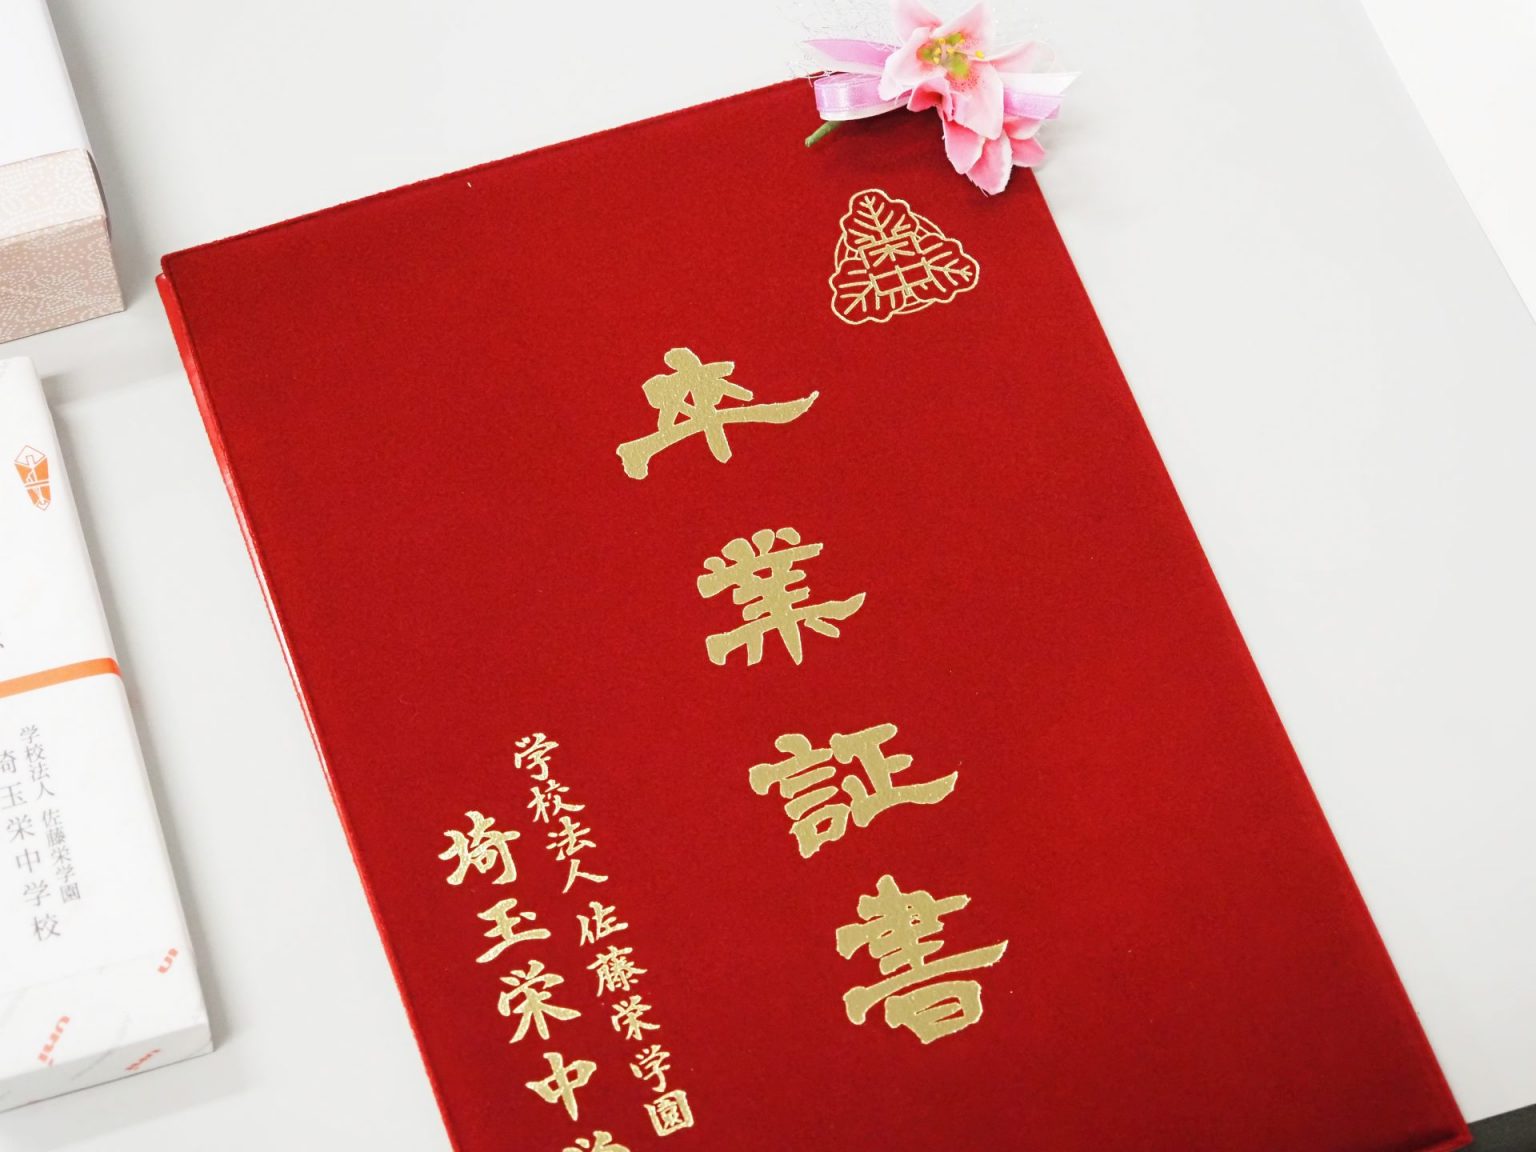 卒業証書
学校法人 佐藤栄学園
埼玉栄中学
学校法人 佐藤栄学園
埼玉栄中学校
uni
uni